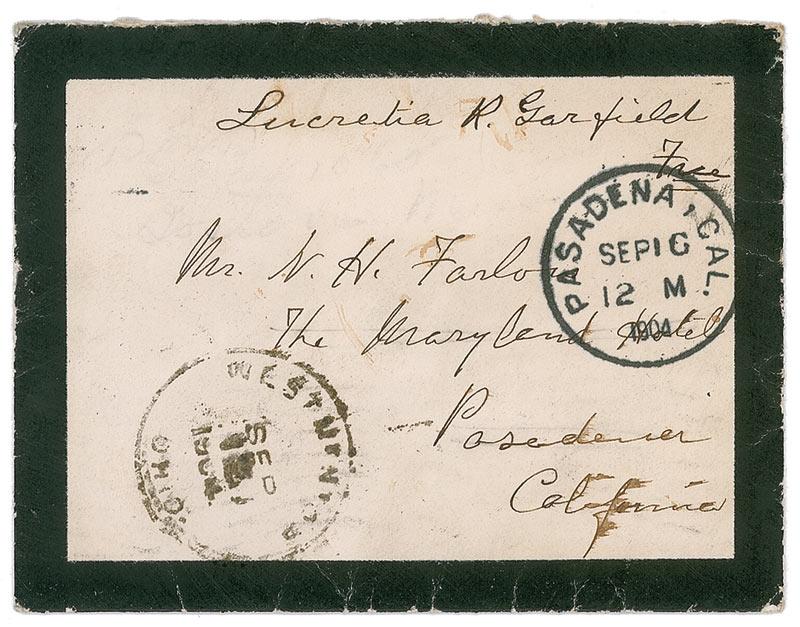 Lucretia R. Garfield
Free
Mr. N. H. Farlow
The Maryland Hotel
Pasadena
California
PASADENA, CAL.
SEP 16
12 M
1904
OHIO
SEP